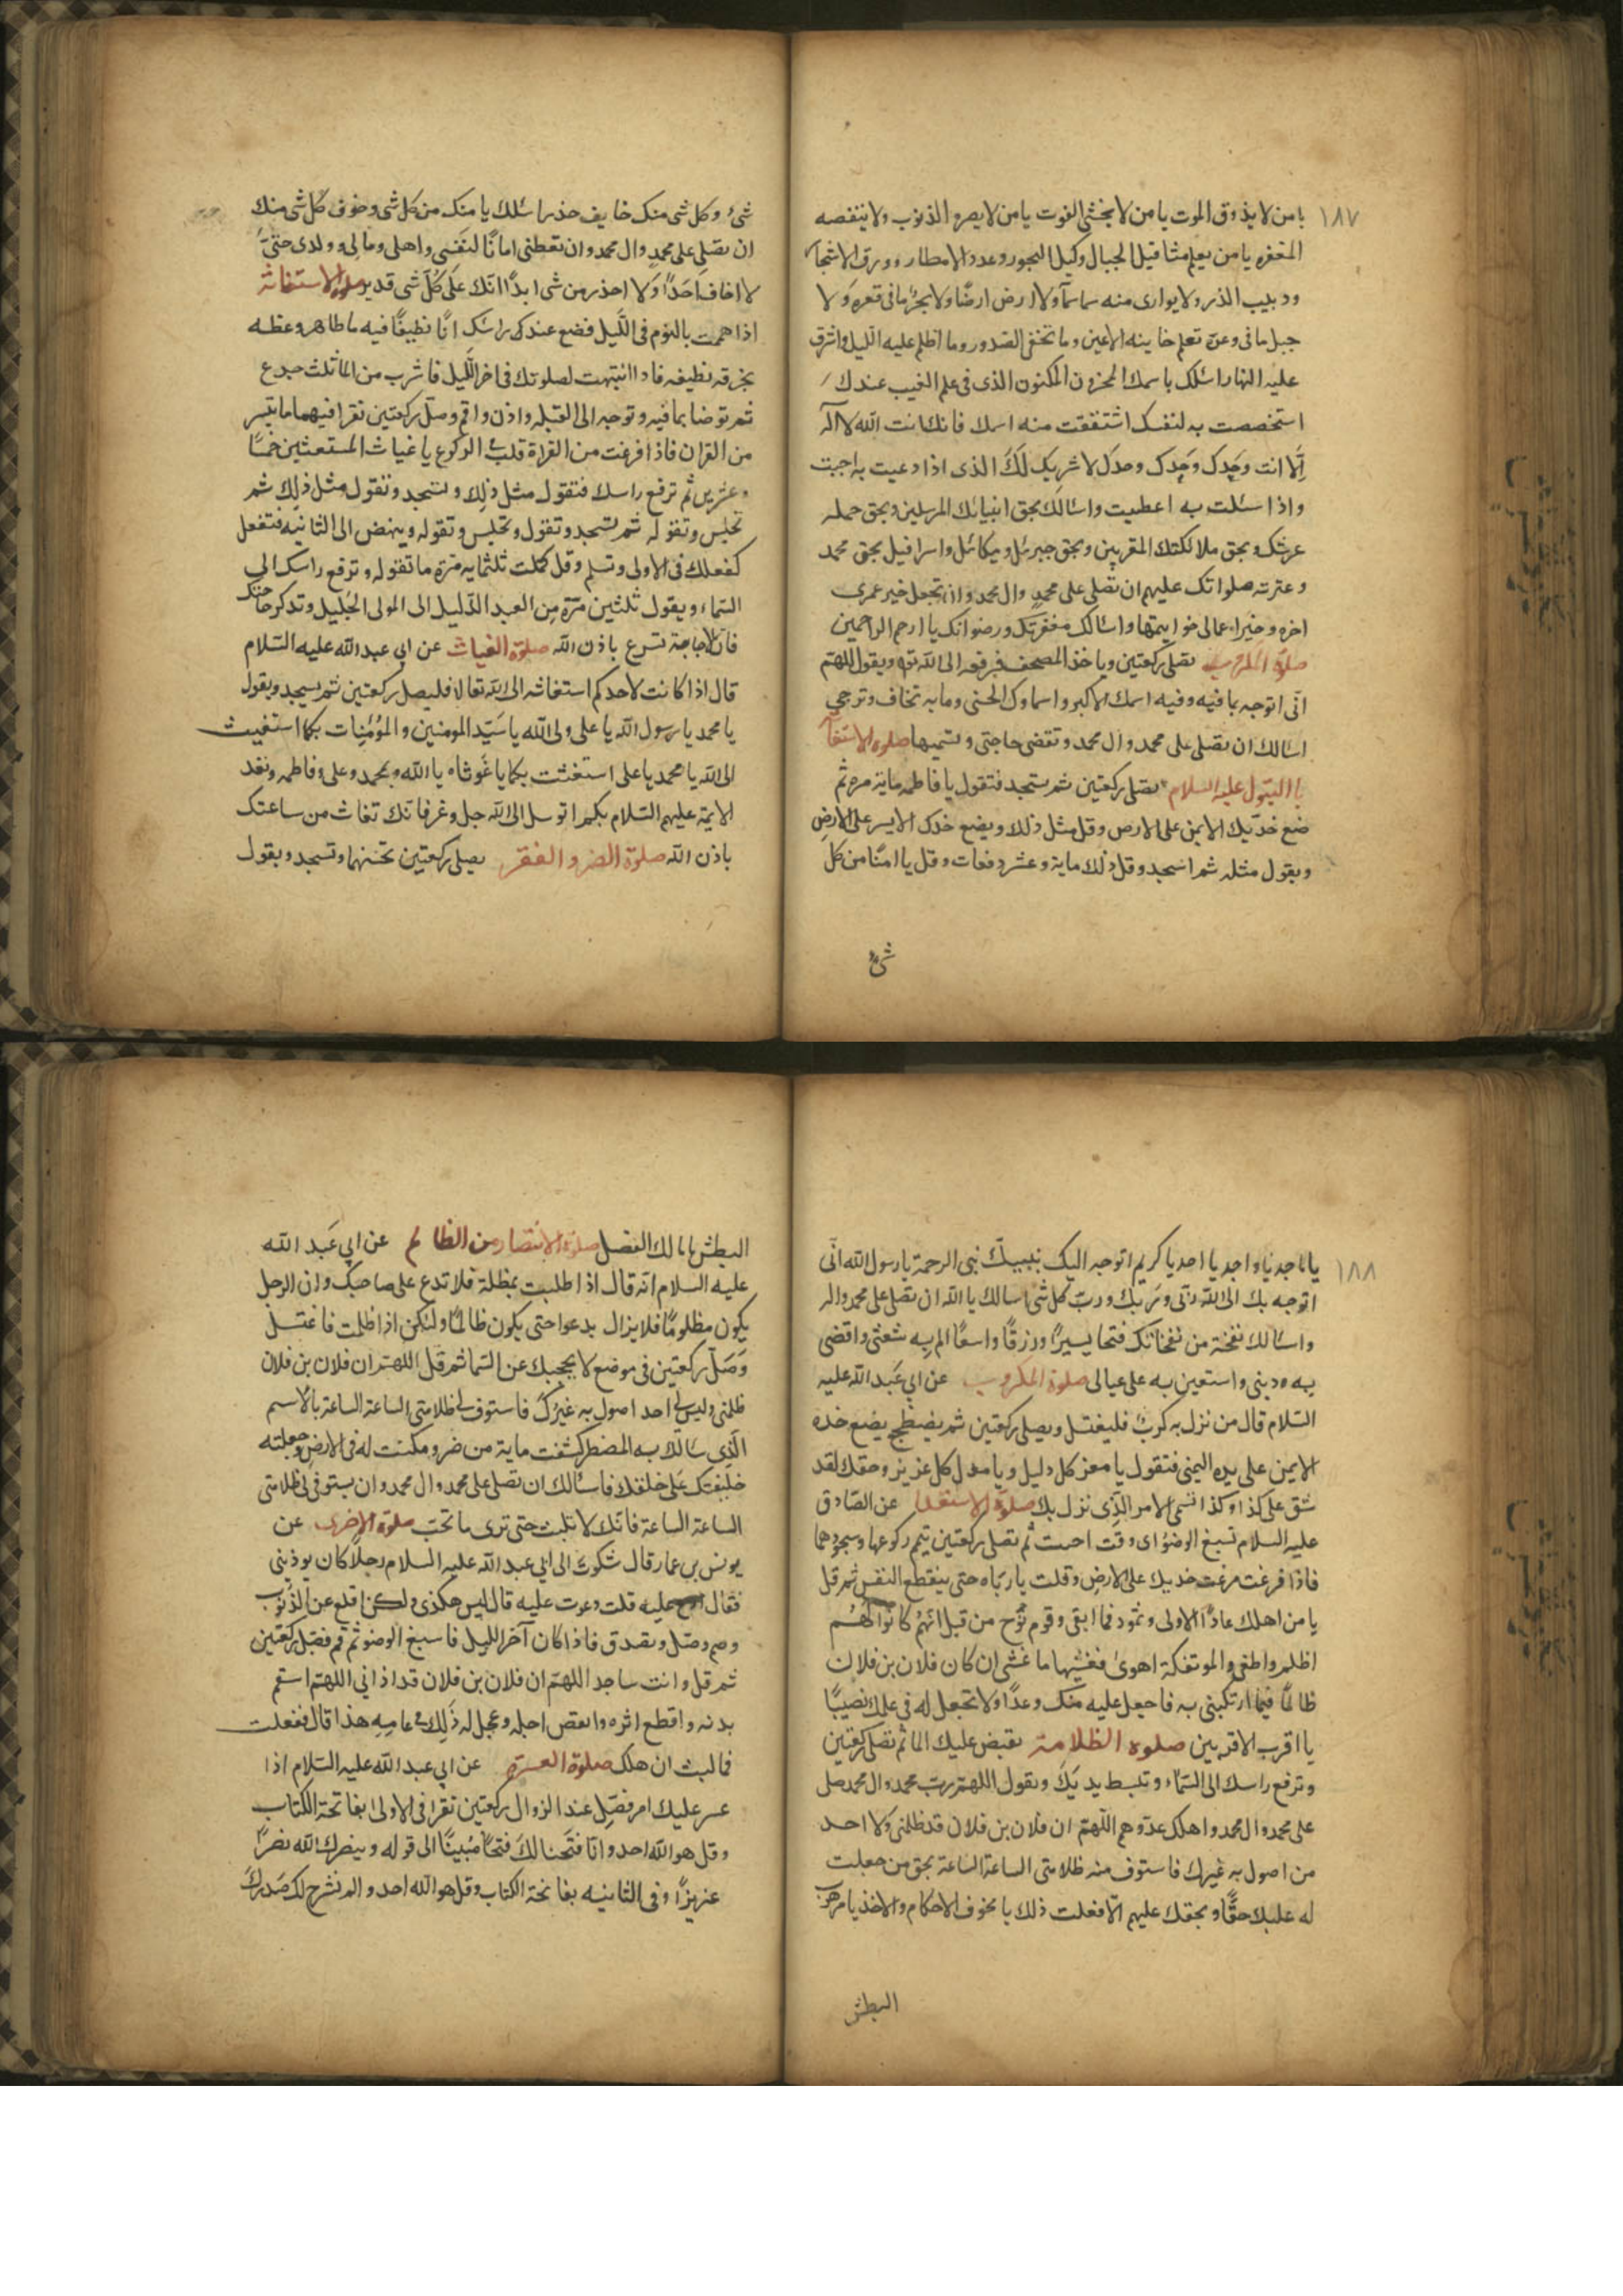 ١٨٧
يا من لا يذوق الموت يا من لا يخشى الفوت يا من لا يصره الذنوب ولا ينقصه
المغفره يا من يعلم مثاقيل الجبال وكيل البحور وعدد الامطار وورق الاشجار
ودبيب الذر ولا يوارى منه سما سمآ ولا ارض ارضًا ولا بحرٌ ما فى قعره وَلا
جبل ما فى وعره تعلم خاينه الاعين وما تخفى الصدور وما اظلم عليه الليل واشرق
عليَه النهار اسئلك باسمك المخزون المكنون الذى فى علم الغيب عندك
استخصصت به لنفسك اشتققت منه اسمك فانك انت الله لا اله
اِلّا انت وحدك وحدك وحدك لا شريك لَكَ الذى اذا دعيت به اجبت
واذا سئلت به اعطيت واسالك بحق انبيائك المرسلين وبحق حمله
عرشك وبحق ملائكتك المقربين وبحق جبرئل وميكائل واسرافيل بحق محمد
وعترته صلواتك عليهم ان تصلى على محمدٍ وال محمد وان تجعل خير عمرى
اخره وخير اعمالى خواتيمها واسالك مغفرتك ورضوانك يا ارحم الراحمين
صلوة المكروب تصلى ركعتين وياخذ المصحف فيرفعه الى الله تع ويقول اللهم
انّى اتوجه بما فيه وفيه اسمك الاكبر واسماوك الحسنى وما به تخاف وترجى
اسالك ان تصلى على محمد وال محمد وتقضى حاجتى وتسميها صلوه الاستغاثه
با البتول عليه السلام تصلى ركعتين ثم تسجد فتقول يا فاطمه مايه مره ثم
ضع خدّيك الايمن على الارص وقل مثل ذلك ويضع خدك الايسر على الارض
ويقول مثله ثم اسجد وقل ذلك ماية وعشر دفعات وقل يا امنًا من كل
شىء
شىءٌ وكل شى منك خايف حذر اسئلك يا منك من كل شى وخوف كل شى منك
ان تصلى على محمدٍ وال محمد وان تعطنى امانًا لنَفسى واهلى ومالى وولدى حتىّ
لا اخاف اَحَدًا وَلا احذر من شى ابدًا انّك عَلى كُلّ شى قدير صلوه الاستغاثه
اذا هممت بالنوم فى اللّيل فضع عندك راسك انًا نظيفًا فيه ما طاهر وغطه
بخرقه نظيفه فاذا انتبهت لصلوتك فى اخر اللّيل فاشرب من الما ثلث جرع
ثم توضا بما فيه وتوجه الى القبله واذن واقم وصلّ ركعتين تقرا فيهما ما تيسر
من القران فاذا فرغت من القراة قلت فى الركوع يا غياث المستغيثين خمسًا
وعشرين ثم ترفع راسك فتقول مثل ذلِك وتسجد وتقول مثل ذلِك ثم
تجلس وتقوله ثم تسجد وتقول وتجلس وتقوله وينهض الى الثانيه فتفعل
كفعلك فى الاولى وتسلم وقل كملت ثلثمايه مَرّه ما تقوله وترفع راسك الى
السَّماء ويقول ثلثين مَرّة مِن العبد الذّليل الى المولى الجَليل وتذكر حاجتك
فان الاجابة تسرع باذن الله صلوة الغياث عن ابى عبد الله عليه السّلام
قال اذا كانت لاحدكم استغاثه الى الله تعالى فليصل ركعتين ثم يسجد ويقول
يا محمد يا رسول الله يا على ولى الله يا سَيّد المومنين والمؤمنات بكما استغيث
الى الله يا محمد يا على استغثت بكما يا غَوثاه يا الله وبمحمد وعلى وفاطمه وتعد
الايمة عليهم السّلام بكم اتوسل الى الله جل وعز فانك تغاث من ساعتك
باذن الله صلوة الضر والفقر يصلى ركعتين تحسنهما وتسجد ويقول
١٨٨
يا ماجد يا واجد يا احد يا كريم اتوجه اليك بنبيك نبى الرحمة يا رسول الله انّى
اتوجه بك الى الله ربّى وَرَبك وربّ كل شى اسالك يا الله ان تصلى على محمد واله
واسالك نفحة من نفحاتك فتحا يسيرًا ورزقًا واسعًا الم به شعثى واقضى
به دينى واستعين به على عيالى صلوة المكروب عن ابى عَبد الله عليه
السّلام قال من نزل به كربٌ فليغتسل ويصلى ركعتين ثم يضطجع يضع خده
الايمن على يده اليمنى فتقول يا معز كل ذليل ويا مذل كل عزيز وحقك لقد
شق على كذا وكذا تسمى الامر الّذى نزل بك صلوة الاستعدا عن الصّادق
عليه السلام تسبغ الوضوء اى وقت احببت ثم تصلى ركعتين يتم ركوعها وسجودهما
فاذا فرغت مرغت خديك على الارض وقلت يا ربّاه حتى ينقطع النفس ثم قل
يا من اهلك عادًا الاولى وثمود فما ابقى وقوم نوُح من قبل انهُم كانُوا هُم
اظلم واطغى والموتفكة اهوىٰ فغشيها ما غشى ان كان فلان بن فلان
ظالمًا فيما ارتكبنى به فاجعل عليه منك وعدًا ولا تجعل له فى حلمك نصيبًا
يا اقرب الاقربين صلوه الظلامة تفيض عليك الما ثم تصلى ركعتين
وترفع راسك الى السّماء وتبسط يديَكَ وتقول اللهم ربّ محمد وال محمد صلى
على محمد وال محمد واهلك عدّوهم اللّهم ان فلان بن فلان قد ظلمنى وَلا احد
من اصول به غيرك فاستوف منه ظلامتى الساعة الساعة بحق من جعلت
له عليك حقًّا وبحقك عليهم الّا فعلت ذلك يا مخوف الاحكام والاخذ يا مرهوب
البطش
البطش يا مالك الفضل صلوة الانتصار من الظالم عن ابى عَبد الله
عليه السلام انّه قال اذا طلبت بمظلمة فلا تدع على صاحبك وان الرجل
يكون مظلومًا فلا يزال يدعوا حتى يكون ظالمًا ولكن اذا ظلمت فاغتسل
وَصَلّ ركعتين فى موضع لا يحجبك عن السّما ثم قل اللهم ان فلان بن فلان
ظلمنى وليس لى احد اصول به غيرك فاستوف لى ظلامتى الساعة الساعة بالاسم
الّذى سالك به المضطر كشفت ما به من ضر ومكنت له فى الارض وجعلته
خليفتك عَلى خلقك فاسئالك ان تصلى على محمد وال محمد وان يستوفى لى ظلامتى
الساعة الساعة فانّك لا تلبث حتى ترى ما تحبّ صلوة الاخرى عن
يونس بن عمار قال شكوت الى ابى عبد الله عليه السلام رجلًا كان يوذينى
فقال ادع عليه قلت دعوت عليه قال ليس هكذى ولكن اقلع عن الذنوب
وصم وصّل وتصدق فاذا كان آخر الليل فاسبغ الوضو ثم قم فصّل ركعتين
ثم قل وانت ساجد اللهمّ ان فلان بن فلان قد اذانى اللهمّ اسقم
بدنه واقطع اثره وانقص اجله وعجل له ذَلِكَ فى عامِهِ هذا قال ففعلت
فما لبث ان هلك صلوة العسرة عن ابى عبد الله عليه السّلام اذا
عسر عليك امر فصّل عند الزوال ركعتين تقرا فى الاولى بفاتحة الكتاب
وقل هو الله احد وانّا فتَحنا لكَ فتحًا مُبينًا الى قوله وينصرك الله نصرًا
عزيزًا وفى الثانيه بفاتحة الكتاب وقل هو الله احد والم نشرح لك صَدركَ